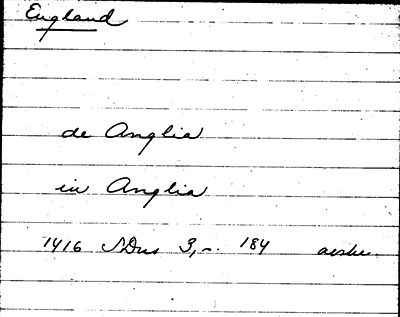 England
de Anglia
in Anglia
1416 SDns 3,~. 184